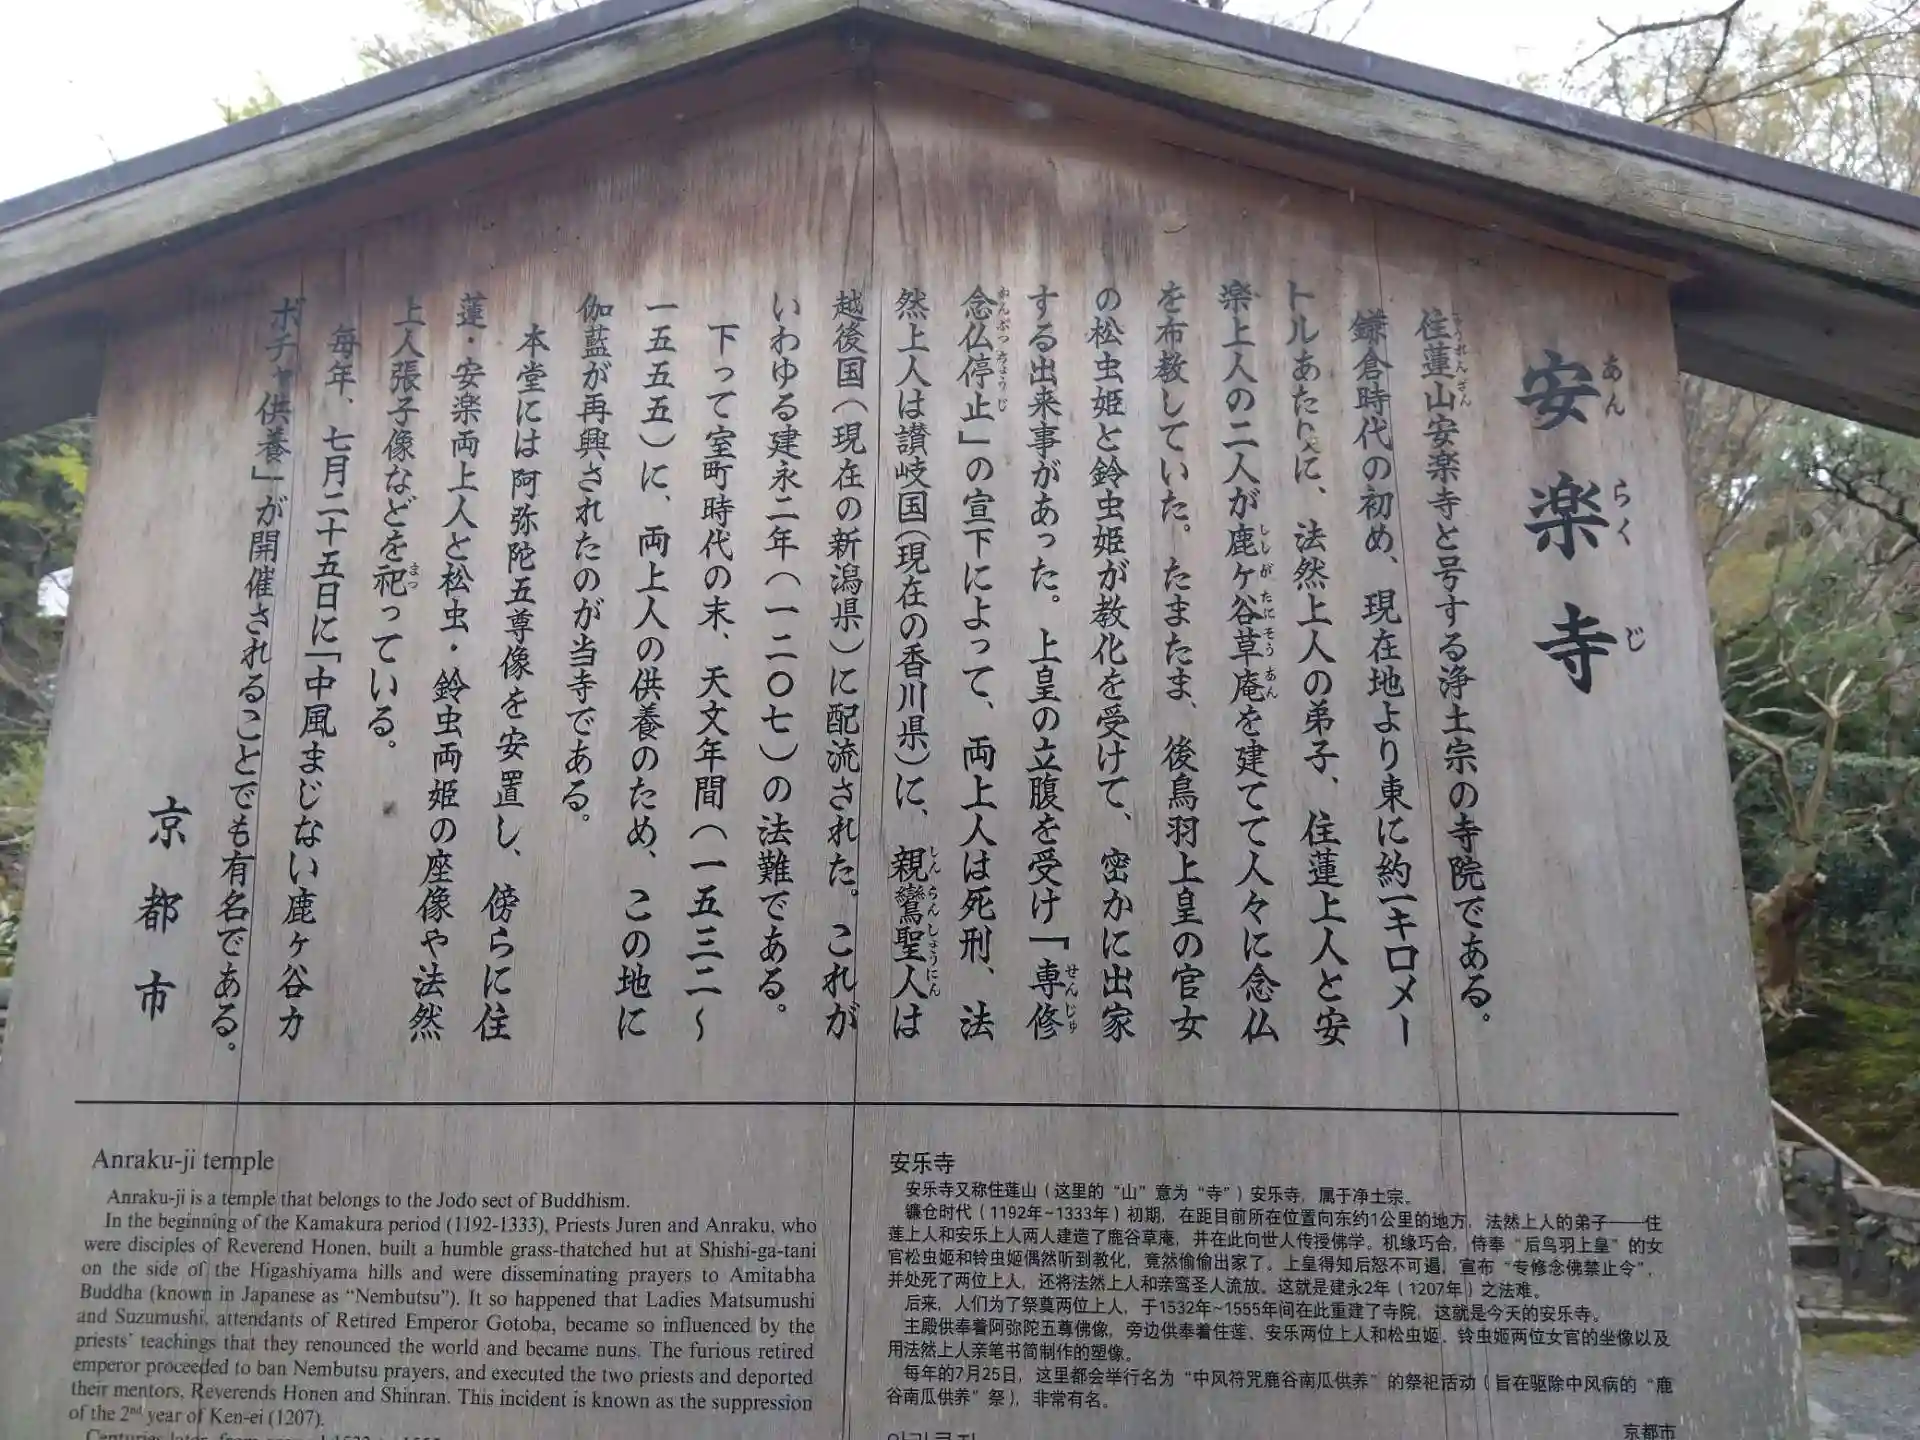 安楽寺
あんらくじ
住蓮山安楽寺と号する浄土宗の寺院である。
鎌倉時代の初め、現在地より東に約一キロメー
トルあたりに、法然上人の弟子、住蓮上人と安
楽上人の二人が鹿ヶ谷草庵を建てて人々に念仏
を布教していた。たまたま、後鳥羽上皇の官女
の松虫姫と鈴虫姫が教化を受けて、密かに出家
する出来事があった。上皇の立腹を受け「専修
念仏停止」の宣下によって、両上人は死刑、法
然上人は讃岐国(現在の香川県)に、親鸞聖人は
越後国(現在の新潟県)に配流された。これが
いわゆる建永二年(一二〇七)の法難である。
下って室町時代の末、天文年間(一五三二~
一五五五)に、両上人の供養のため、この地に
伽藍が再興されたのが当寺である。
本堂には阿弥陀五尊像を安置し、傍らに住
蓮・安楽両上人と松虫・鈴虫両姫の座像や法然
上人張子像などを祀っている。
毎年、七月二十五日に「中風まじない鹿ヶ谷カ
ボチャ供養」が開催されることでも有名である。
京都市
Anraku-ji temple
Anraku-ji is a temple that belongs to the Jodo sect of Buddhism.
In the beginning of the Kamakura period (1192-1333), Priests Juren and Anraku, who
were disciples of Reverend Honen, built a humble grass-thatched hut at Shishi-ga-tani
on the side of the Higashiyama hills and were disseminating prayers to Amitabha
Buddha (known in Japanese as “Nembutsu”). It so happened that Ladies Matsumushi
and Suzumushi, attendants of Retired Emperor Gotoba, became so influenced by the
priests’ teachings that they renounced the world and became nuns. The furious retired
emperor proceeded to ban Nembutsu prayers, and executed the two priests and deported
their mentors, Reverends Honen and Shinran. This incident is known as the suppression
of the 2nd year of Ken-ei (1207).
安乐寺
安乐寺又称住莲山(这里的“山”意为“寺”)安乐寺,属于净土宗。
镰仓时代(1192年~1333年)初期,在距目前所在位置向东约1公里的地方,法然上人的弟子——住
莲上人和安乐上人两人建造了鹿谷草庵,并在此向世人传授佛学。机缘巧合,侍奉“后鸟羽上皇”的女
官松虫姬和铃虫姬偶然听到教化,竟然偷偷出家了。上皇得知后怒不可遏,宣布“专修念佛禁止令”,
并处死了两位上人,还将法然上人和亲鸾圣人流放。这就是建永2年(1207年)之法难。
后来,人们为了祭奠两位上人,于1532年~1555年间在此重建了寺院,这就是今天的安乐寺。
主殿供奉着阿弥陀五尊佛像,旁边供奉着住莲、安乐两位上人和松虫姬、铃虫姬两位女官的坐像以及
用法然上人亲笔书简制作的塑像。
每年的7月25日,这里都会举行名为“中风符咒鹿谷南瓜供养”的祭祀活动(旨在驱除中风病的“鹿
谷南瓜供养”祭),非常有名。
京都市